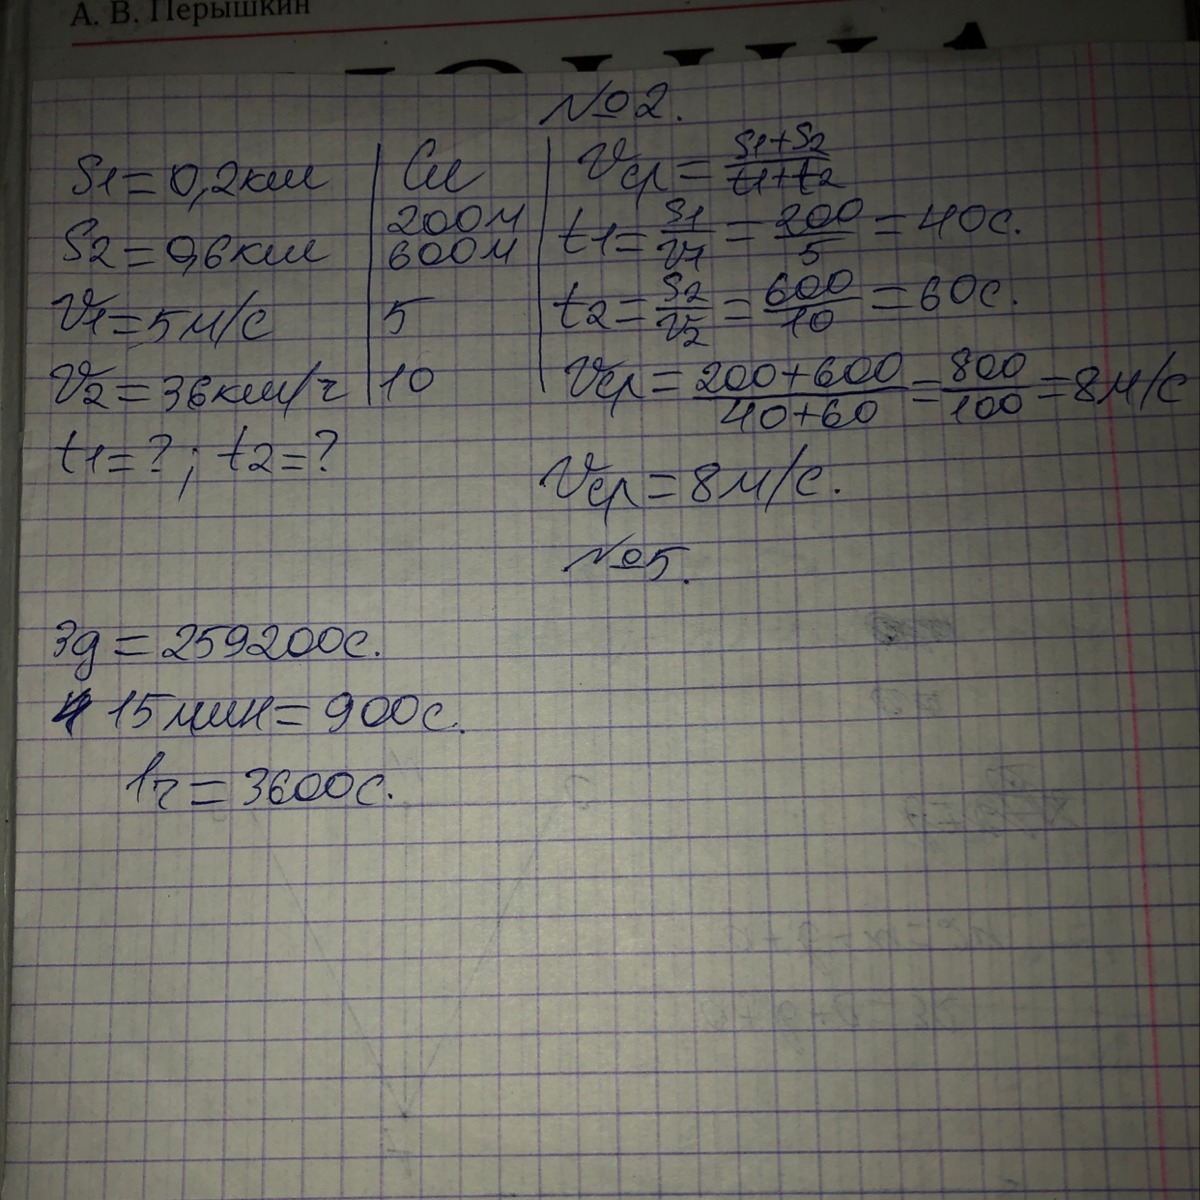 А. В. Перышкин
№2.
S1=0,2км
S2=0,6км
V1=5м/с
V2=36км/ч
t1=?; t2=?
Си
200м
600м
5
10
Vср=(S1+S2)/(t1+t2)
t1=S1/V1=200/5=40с.
t2=S2/V2=600/10=60с.
Vср=(200+600)/(40+60)=800/100=8м/с
Vср=8м/с.
№5.
3д=259200с.
15мин=900с.
1ч=3600с.